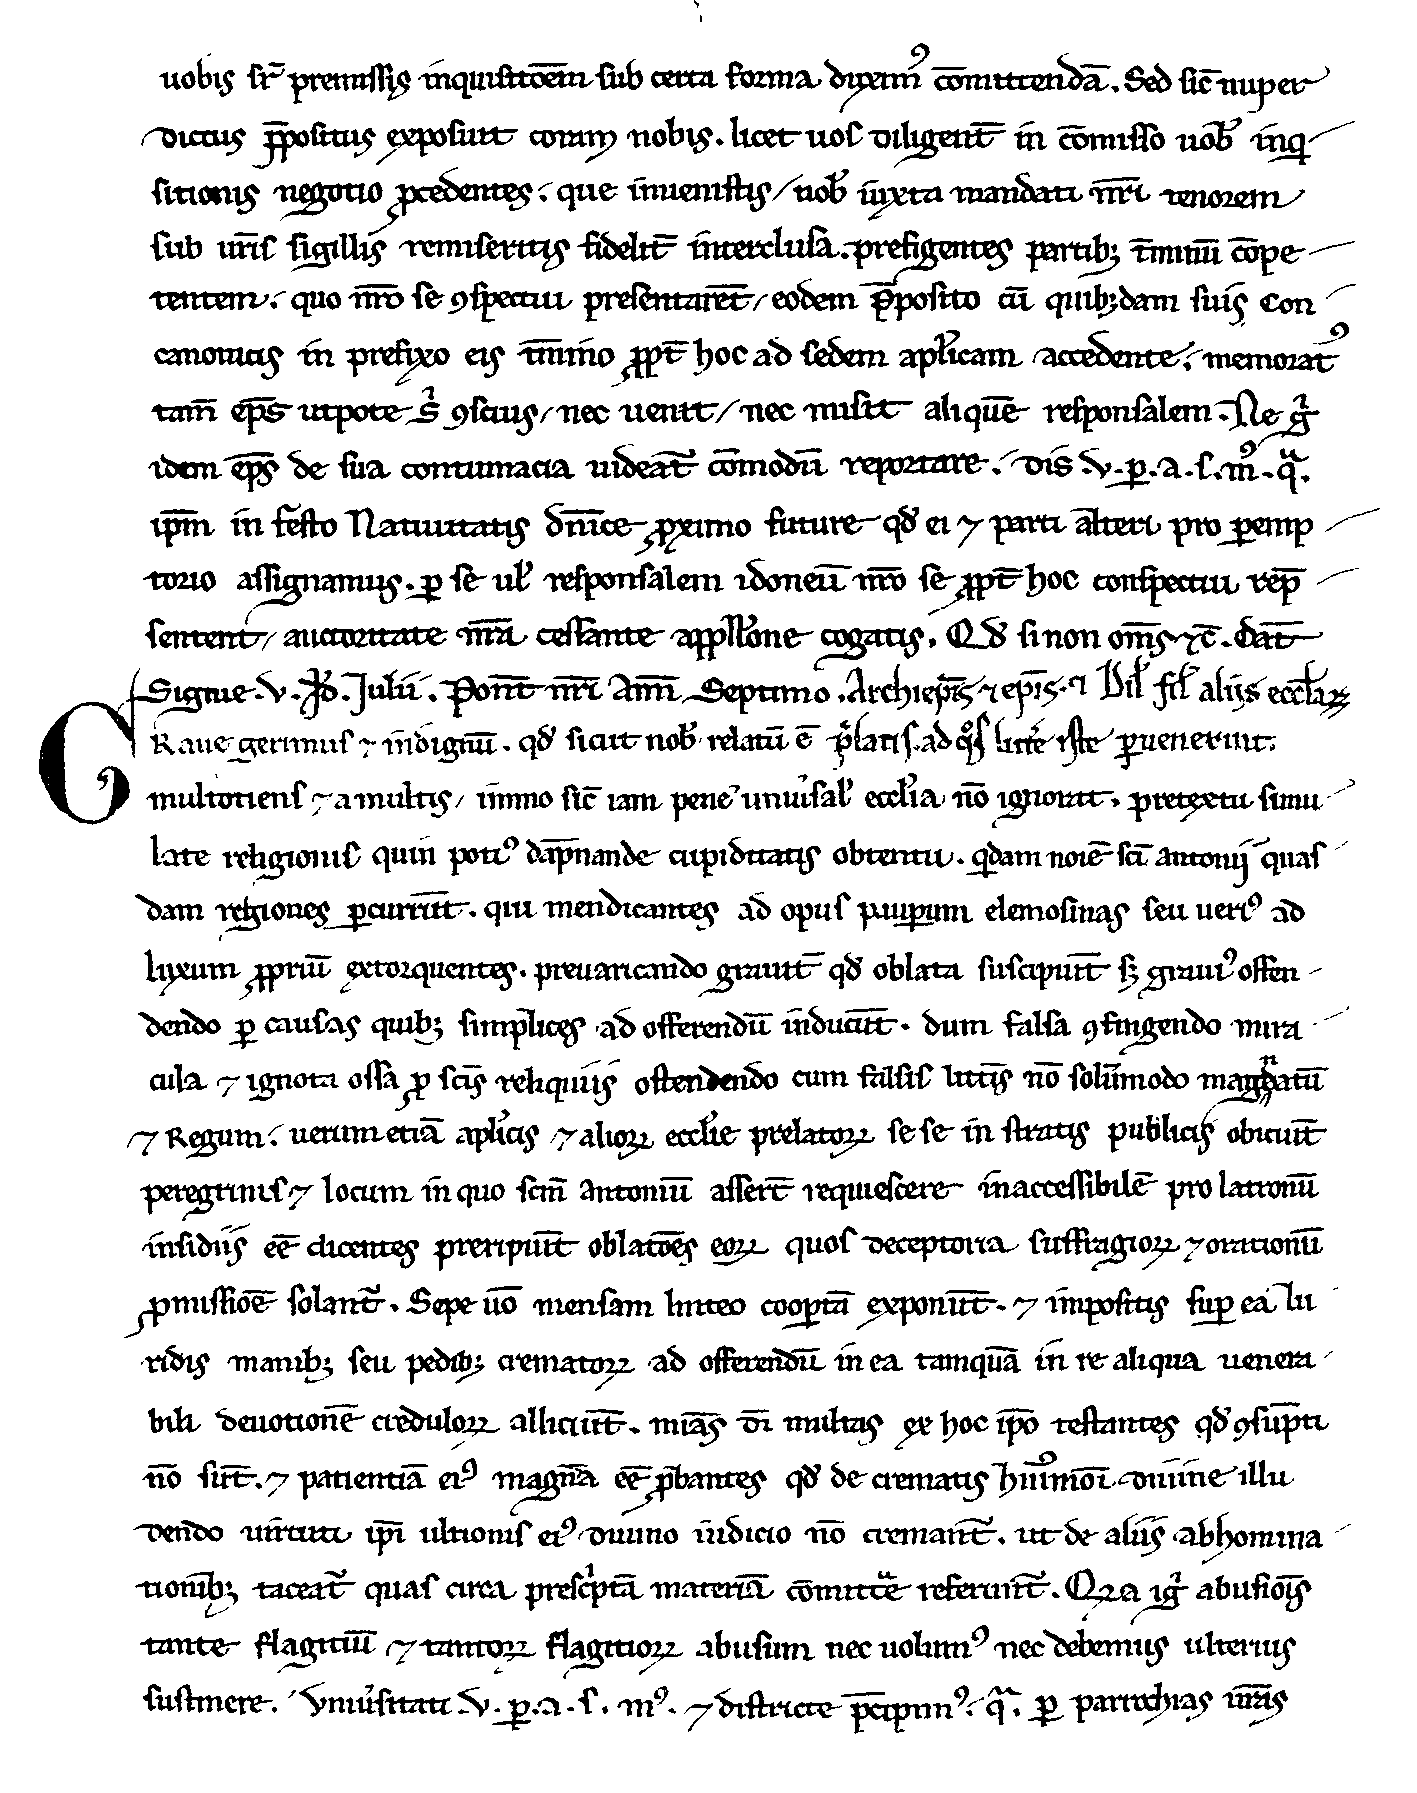 uobis sr̄ premissis inquisitōem sub certa forma duxem⁹ cōmittendā. Sed sic̄ nuper
dictus p̄positus exposuit coram nobis. licet uos diligent̄ in cōmisso uob̄ inqi
sitionis negotio ꝓcedentes. que inuenistis / nob̄ iuxta mandati nr̄i tenorem
sub ur̄is sigillis remiseritis fidelit̄ interclusa. prefigentes partibꝫ t̄minū cōpe
tentem. quo nr̄o se ꝯspectui presentarēt / eodem p̄posito cū quibꝫdam suis con
canonicis in prefixo eis t̄mino ꝓpt̄ hoc ad sedem apl̄icam accedente. memorat⁹
tam̄ ep̄s utpote s̄ ꝯscius / nec uenit / nec misit aliquē responsalem. Ne gͥ
idem ep̄s de sua contumacia uideat̄ cōmodū reportare. dis. v. ꝑ. a. s. m⁹. qͣ.
ip̄m in festo Natiuitatis dn̄ice ꝓximo future qd̄ ei ⁊ parti alteri pro ꝑemp
torio assignamus. ꝑ se ul̄ responsalem idoneū nr̄o se ꝓpt̄ hoc conspectui rep̄
sentent / auctoritate nr̄a cessante appll̄one cogatis. Qd̄ si non om̄s ⁊c̄. Dat̄
Signie. v. Id̄. Julii. Pont̄ nr̄i Ann̄ Septimo. Archiep̄is ⁊ ep̄is. ⁊ Dil̄ fil̄ aliis eccl̄aꝝ
GRaue gerimus ⁊ indignū. qd̄ sicut nob̄ relatū ē p̄latis. ad qͦs litt̄e iste ꝑuenerint.
multotiens ⁊ a multis / immo sic̄ iam pene uniu̓sal̄ eccl̄ia nō ignorat. pretextu simu
late religionis quin poti⁹ dāpnande cupiditatis obtentu. qͥdam noīe sc̄i antonii quas
dam regiones ꝑcurrūt. qui mendicantes ad opus pauꝑum elemosinas seu ueri⁹ ad
luxum ꝓpriū extorquentes. preuaricando grauit̄ qd̄ oblata suscipiūt sꝫ graui⁹ offen
dendo ꝑ causas quibꝫ simplices ad offerendū inducūt. dum falsa ꝯfingendo mira
cula ⁊ ignota ossa ꝓ sc̄is reliquiis ostendendo cum falsis litt̄is nō solūmodo magnatū
⁊ Regum. uerum etiā apl̄icis ⁊ alioꝝ eccl̄ie prelatoꝝ se se in stratis publicis obiciūt
peregrinis ⁊ locum in quo sc̄m antoniū assert̄ requiescere inaccessibilē pro latronū
insidiis eē dicentes preripiūt oblatōes eoꝝ quos deceptoria suffragioꝝ ⁊ orationū
ꝓmissiōe solant̄. Sepe uō mensam linteo cooptā exponūt. ⁊ impositis suꝑ ea lu
ridis manibꝫ seu pedibꝫ crematoꝝ ad offerendū in ea tamquā in re aliqua uenera
bili deuotionē creduloꝝ alliciūt. mīas dī multas ex hoc ip̄o testantes qd̄ ꝯsūpti
nō sūt. ⁊ patientiā ei⁹ magnā eē ꝓbantes qd̄ de crematis hui⁹modi diuine illu
dendo uirtuti ip̄i ultionis ei⁹ diuino iudicio nō cremant̄. ut de aliis abhomina
tionibꝫ taceat̄ quas circa presc̓ptā materiā cōmittͤe referunt̄. Qꝛ a igͥ abusiōis
tante flagitiū ⁊ tantoꝝ flagitioꝝ abusum nec uolum⁹ nec debemus ulterius
sustinere. Vniu̓sitati v. ꝑ. a. s. m⁹. ⁊ districte p̄cipim⁹. qͣ. ꝑ parrochias ur̄as